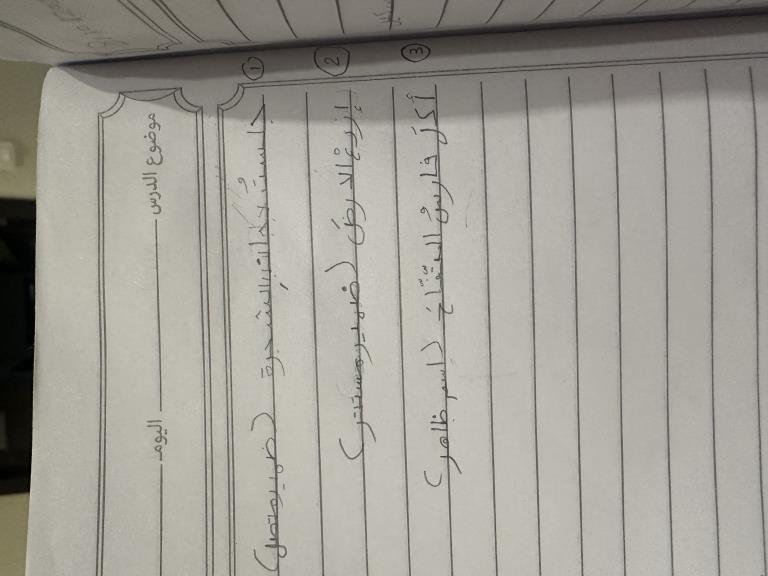 موضوع الدرس اليوم
① جلستُ بجانب الشجرة (ضمير متصل)
② إزرع الارضَ (ضمير مستتر)
③ أكلَ فارسُ التفّاحَ (اسم ظاهر)